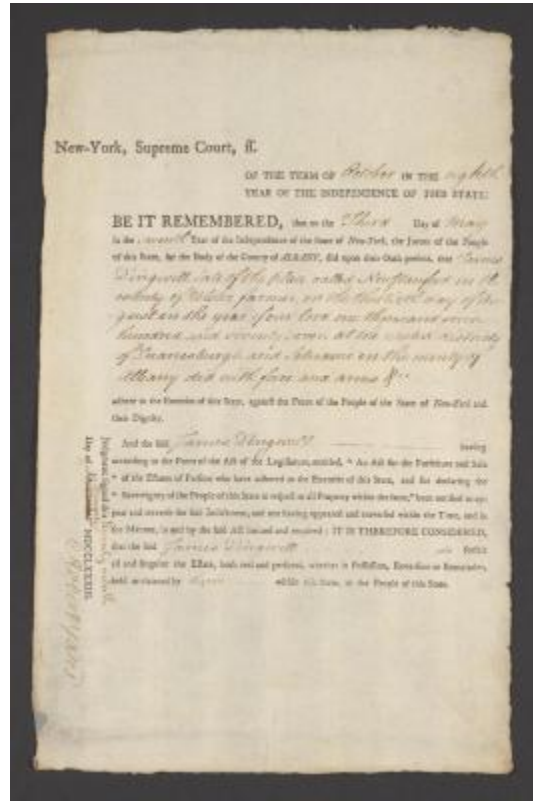 New-York, Supreme Court, ss.
OF THE TERM OF October IN THE eighth
YEAR OF THE INDEPENDENCE OF THIS STATE:
BE IT REMEMBERED, that on the Third Day of May
In the seventh Year of the Independence of the State of New-York, the Jurors of the People
of this State, for the Body of the County of ALBANY, did upon their Oath present, that James
late of the place called in the
County of farmer, on the thirtieth day of
in the year of our Lord one thousand seven
hundred and seventy seven at
of and Schoharie in the County of
Albany did with force and arms &c
adhere to the Enemies of this State, against the Peace of the People of the State of New-York and
their Dignity.
And the said James having
according to the Form of the Act of the Legislature, entitled, " An Act for the Forfeiture and Sale
" of the Estates of Persons who have adhered to the Enemies of this State, and for declaring the
" Sovereignty of the People of this State in respect to all Property within the same," been notified to ap-
pear and traverse the said Indictment, and not having appeared and traversed within the Time, and in
the Manner, in and by the said Act limited and required ; IT IS THEREFORE CONSIDERED,
that the said James do forfeit
all and singular the Estate, both real and personal, whether in Possession, Reversion or Remainder,
held or claimed by him within this State, to the People of this State.
Judgment signed the
Day of MDCCLXXXIII.